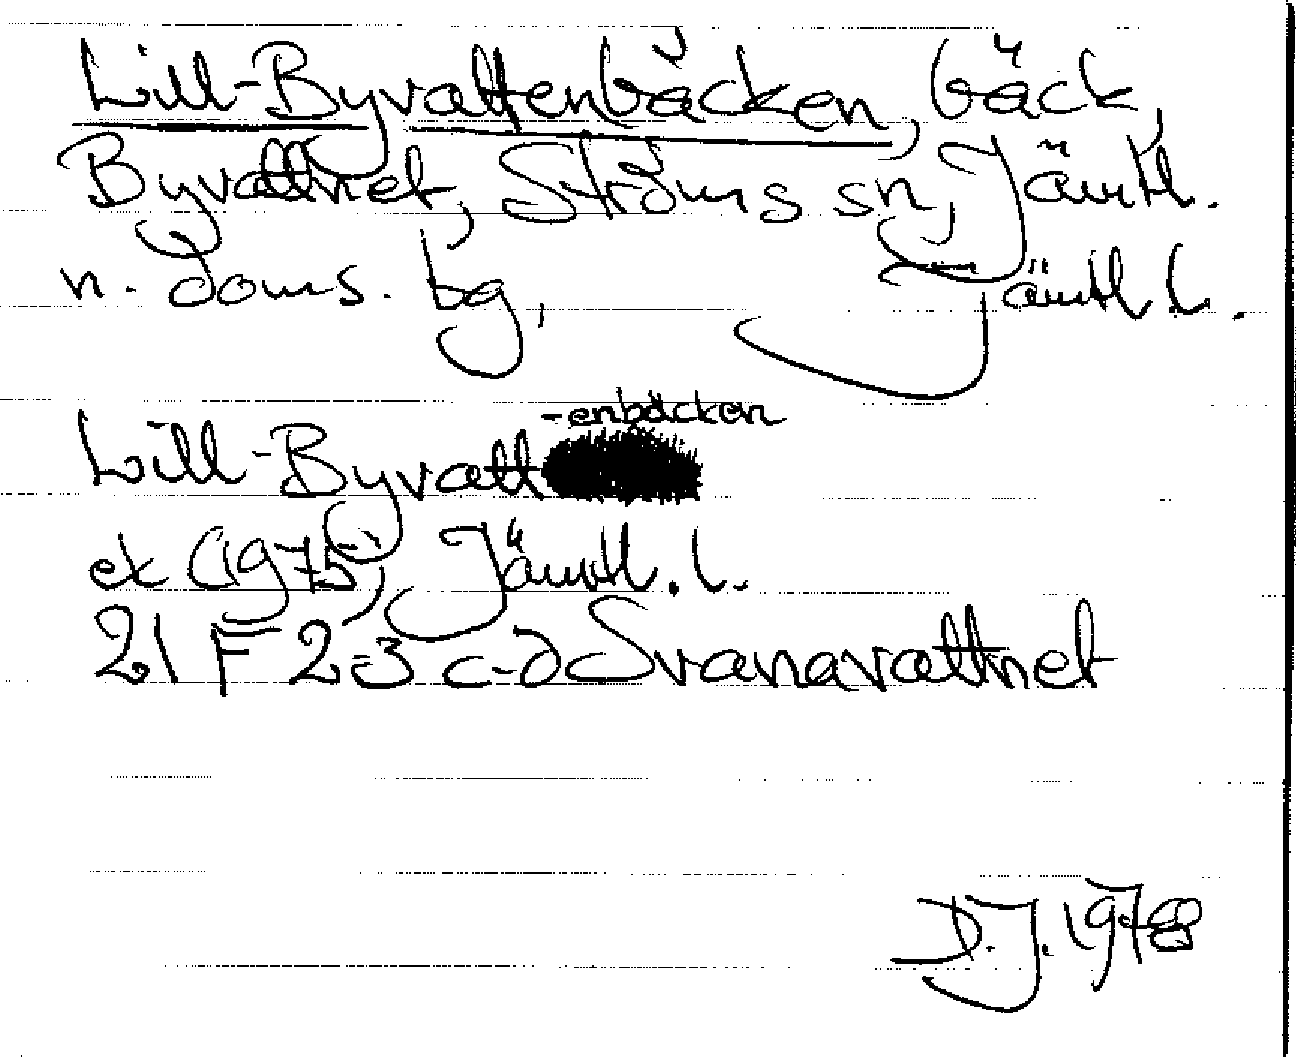 Lill-Byvattenbäcken, bäck,
Byvattnet, Ströms sn, Jämtl.
n. doms. bg, Jämtl l.
-enbäcken
Lill-Byvatt
ek (1975), Jämtl. l.
21 F 2-3 c-d Svanavattnet
D.J. 1978